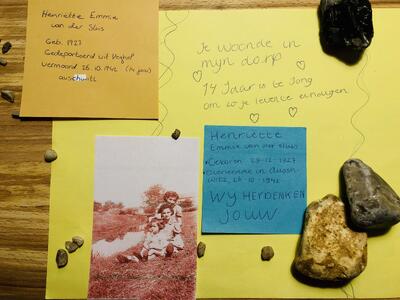 Henriëtte Emmie
van der Sluis
Geb. 1927
Gedeporteerd uit Veghel
vermoord 26.10.1942 (14 jaar)
auschwitz
Je woonde in
mijn dorp
14 Jaar is te Jong
om zo je leventje eindigen
Henriëtte
Emmie van der sluis
Geboren 29-12-1927
witz, 26-10-1942
WIJ HERDENKEN
JOUW